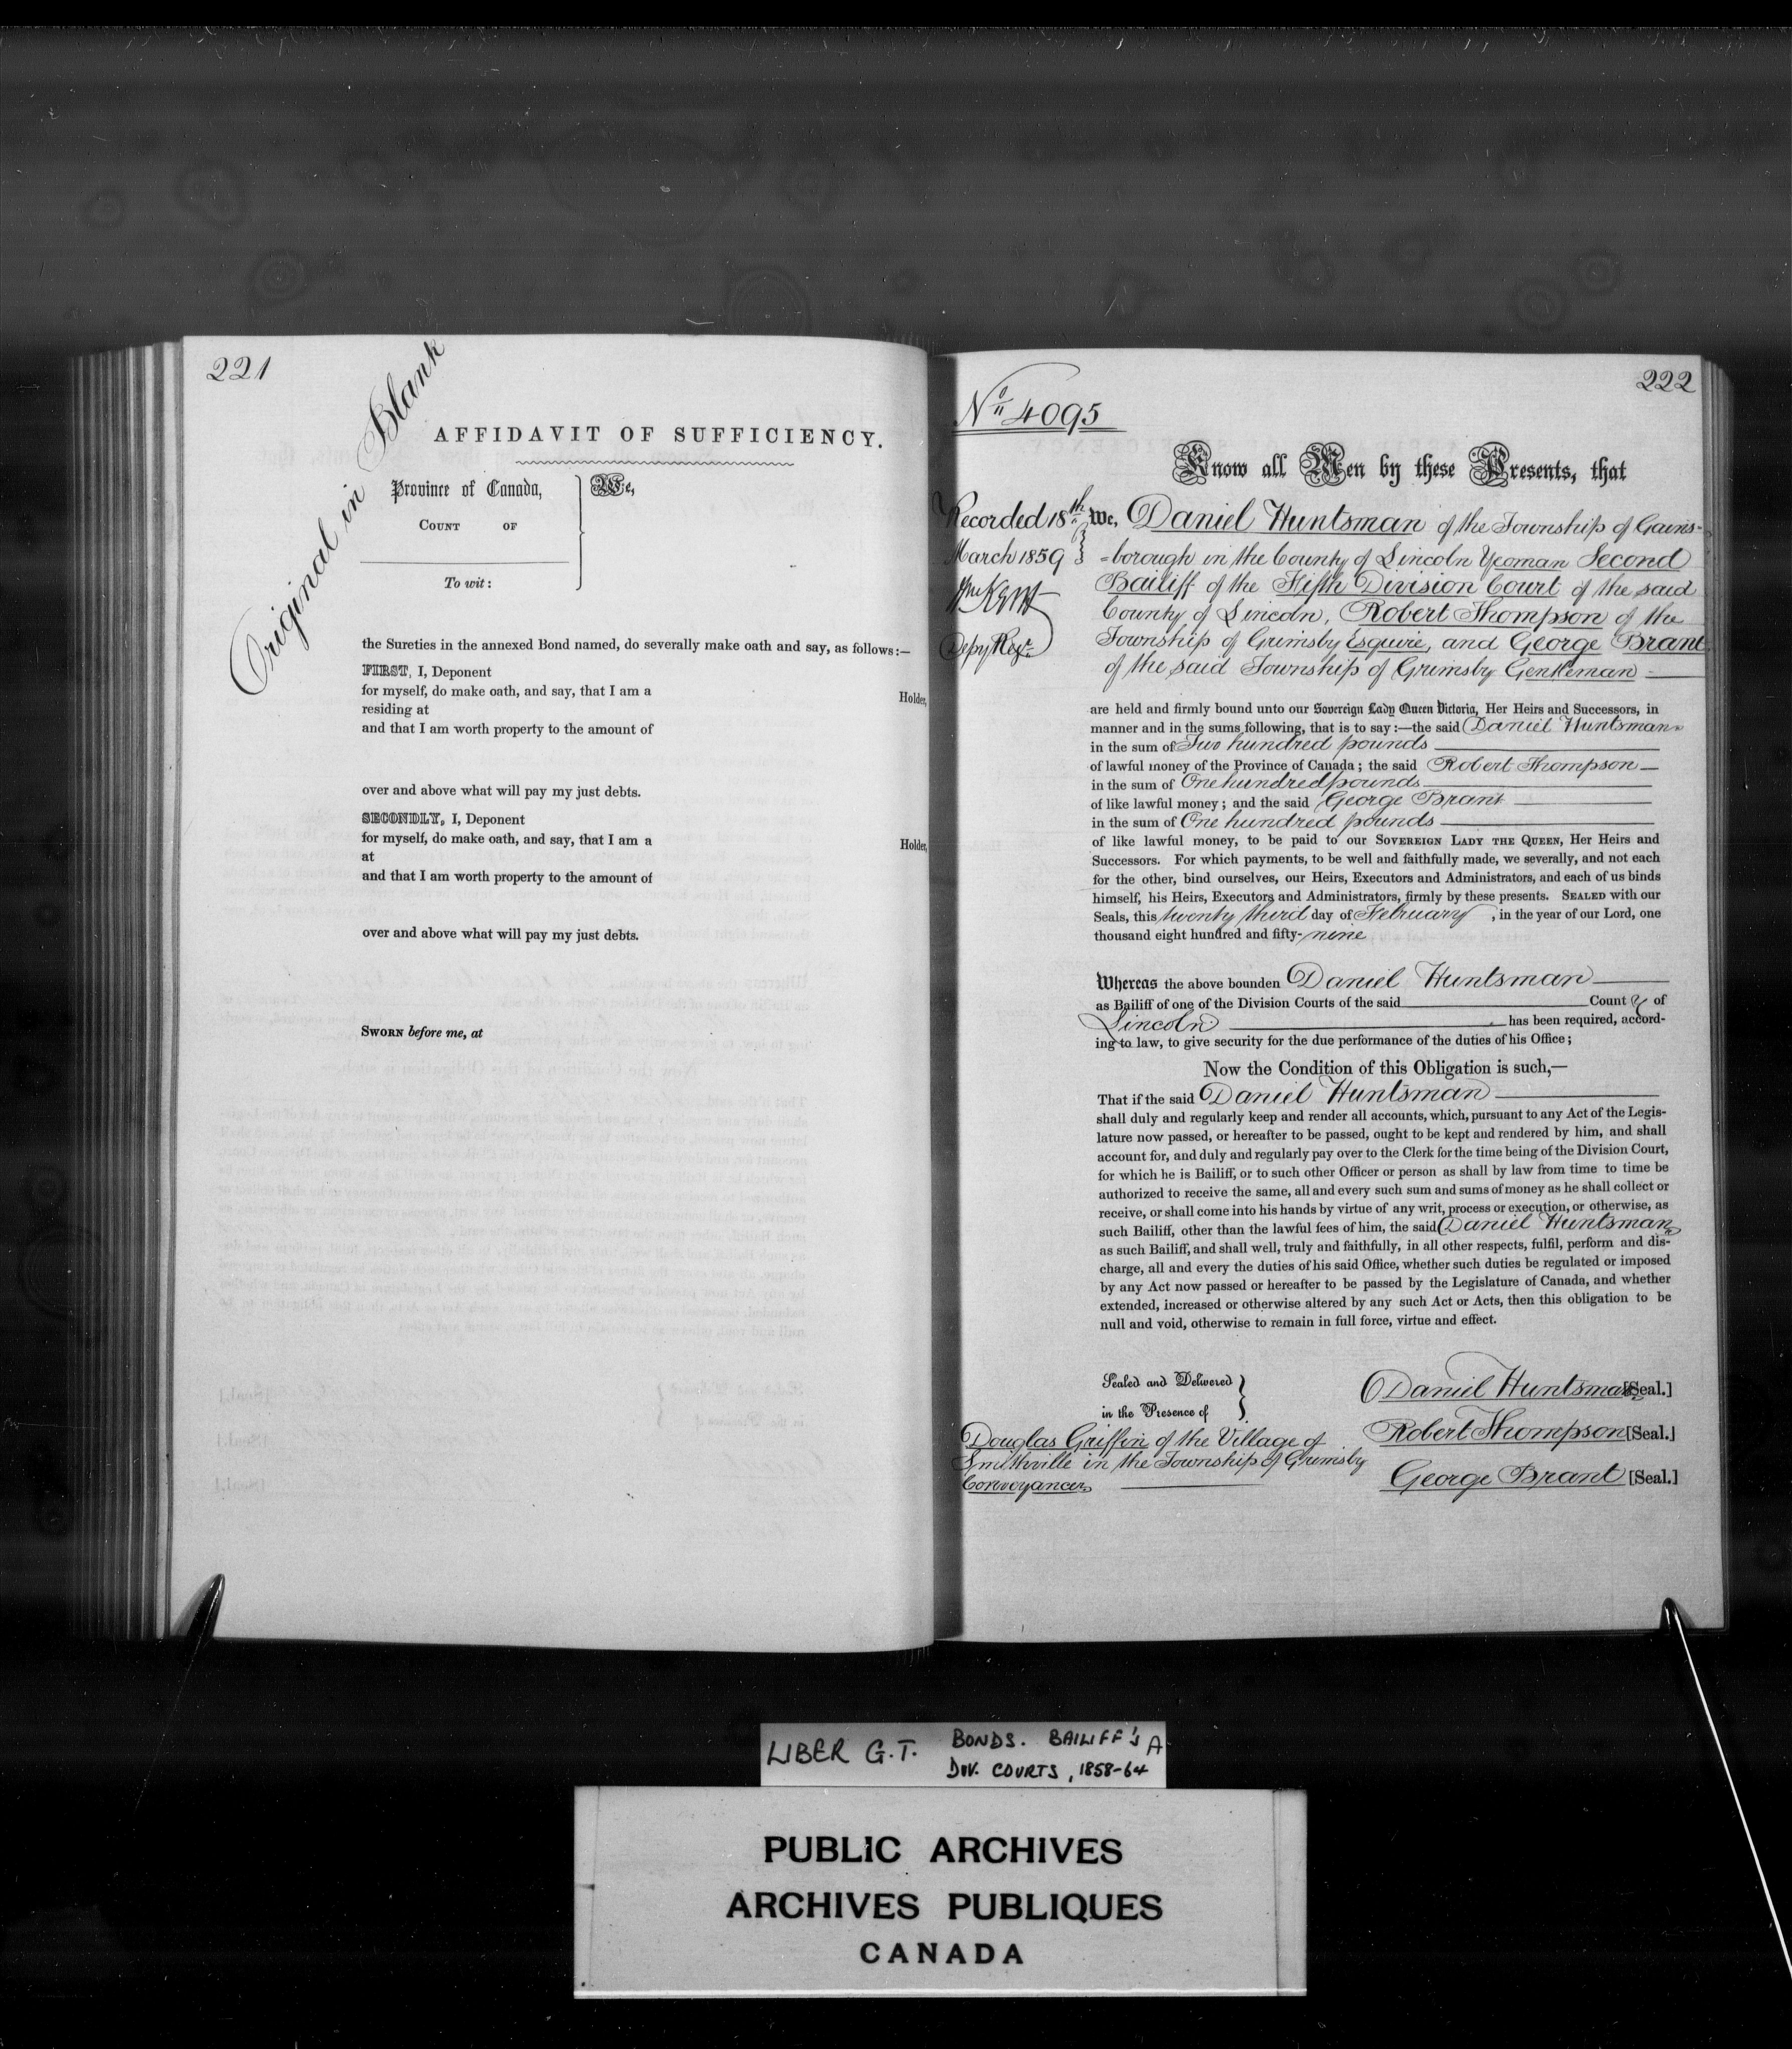 221
Original in Blank
AFFIDAVIT OF SUFFICIENCY.
Province of Canada,
COUNT OF
To wit:
We,
the Sureties in the annexed Bond named, do severally make oath and say, as follows:—
FIRST, I, Deponent
for myself, do make oath, and say, that I am a Holder,
residing at
and that I am worth property to the amount of
over and above what will pay my just debts.
SECONDLY, I, Deponent
for myself, do make oath, and say, that I am a Holder,
at
and that I am worth property to the amount of
over and above what will pay my just debts.
SWORN before me, at
222
No. 4095
Know all Men by these Presents, that
Recorded 18th
March 1859
Depy Regr
We, Daniel Huntsman of the Township of Gains-
-borough in the County of Lincoln Yeoman Second
Bailiff of the Fifth Division Court of the said
County of Lincoln, Robert Thompson of the
Township of Grimsby Esquire, and George Brant
of the said Township of Grimsby Gentleman —
are held and firmly bound unto our Sovereign Lady Queen Victoria, Her Heirs and Successors, in
manner and in the sums following, that is to say:—the said Daniel Huntsman
in the sum of Two hundred pounds
of lawful money of the Province of Canada; the said Robert Thompson —
in the sum of One hundred pounds
of like lawful money; and the said George Brant
in the sum of One hundred pounds
of like lawful money, to be paid to our SOVEREIGN LADY THE QUEEN, Her Heirs and
Successors. For which payments, to be well and faithfully made, we severally, and not each
for the other, bind ourselves, our Heirs, Executors and Administrators, and each of us binds
himself, his Heirs, Executors and Administrators, firmly by these presents. SEALED with our
Seals, this twenty third day of February, in the year of our Lord, one
thousand eight hundred and fifty-nine
Whereas the above bounden Daniel Huntsman
as Bailiff of one of the Division Courts of the said County of
Lincoln has been required, accord-
ing to law, to give security for the due performance of the duties of his Office;
Now the Condition of this Obligation is such,—
That if the said Daniel Huntsman
shall duly and regularly keep and render all accounts, which, pursuant to any Act of the Legis-
lature now passed, or hereafter to be passed, ought to be kept and rendered by him, and shall
account for, and duly and regularly pay over to the Clerk for the time being of the Division Court,
for which he is Bailiff, or to such other Officer or person as shall by law from time to time be
authorized to receive the same, all and every such sum and sums of money as he shall collect or
receive, or shall come into his hands by virtue of any writ, process or execution, or otherwise, as
such Bailiff, other than the lawful fees of him, the said Daniel Huntsman
as such Bailiff, and shall well, truly and faithfully, in all other respects, fulfil, perform and dis-
charge, all and every the duties of his said Office, whether such duties be regulated or imposed
by any Act now passed or hereafter to be passed by the Legislature of Canada, and whether
extended, increased or otherwise altered by any such Act or Acts, then this obligation to be
null and void, otherwise to remain in full force, virtue and effect.
Sealed and Delivered
in the Presence of
Douglas Griffin of the Village of
Smithville in the Township of Grimsby
Conveyancer
Daniel Huntsman [Seal.]
Robert Thompson [Seal.]
George Brant [Seal.]
LIBER G.T. BONDS. BAILIFF'S A
DIV. COURTS, 1858-64
PUBLIC ARCHIVES
ARCHIVES PUBLIQUES
CANADA